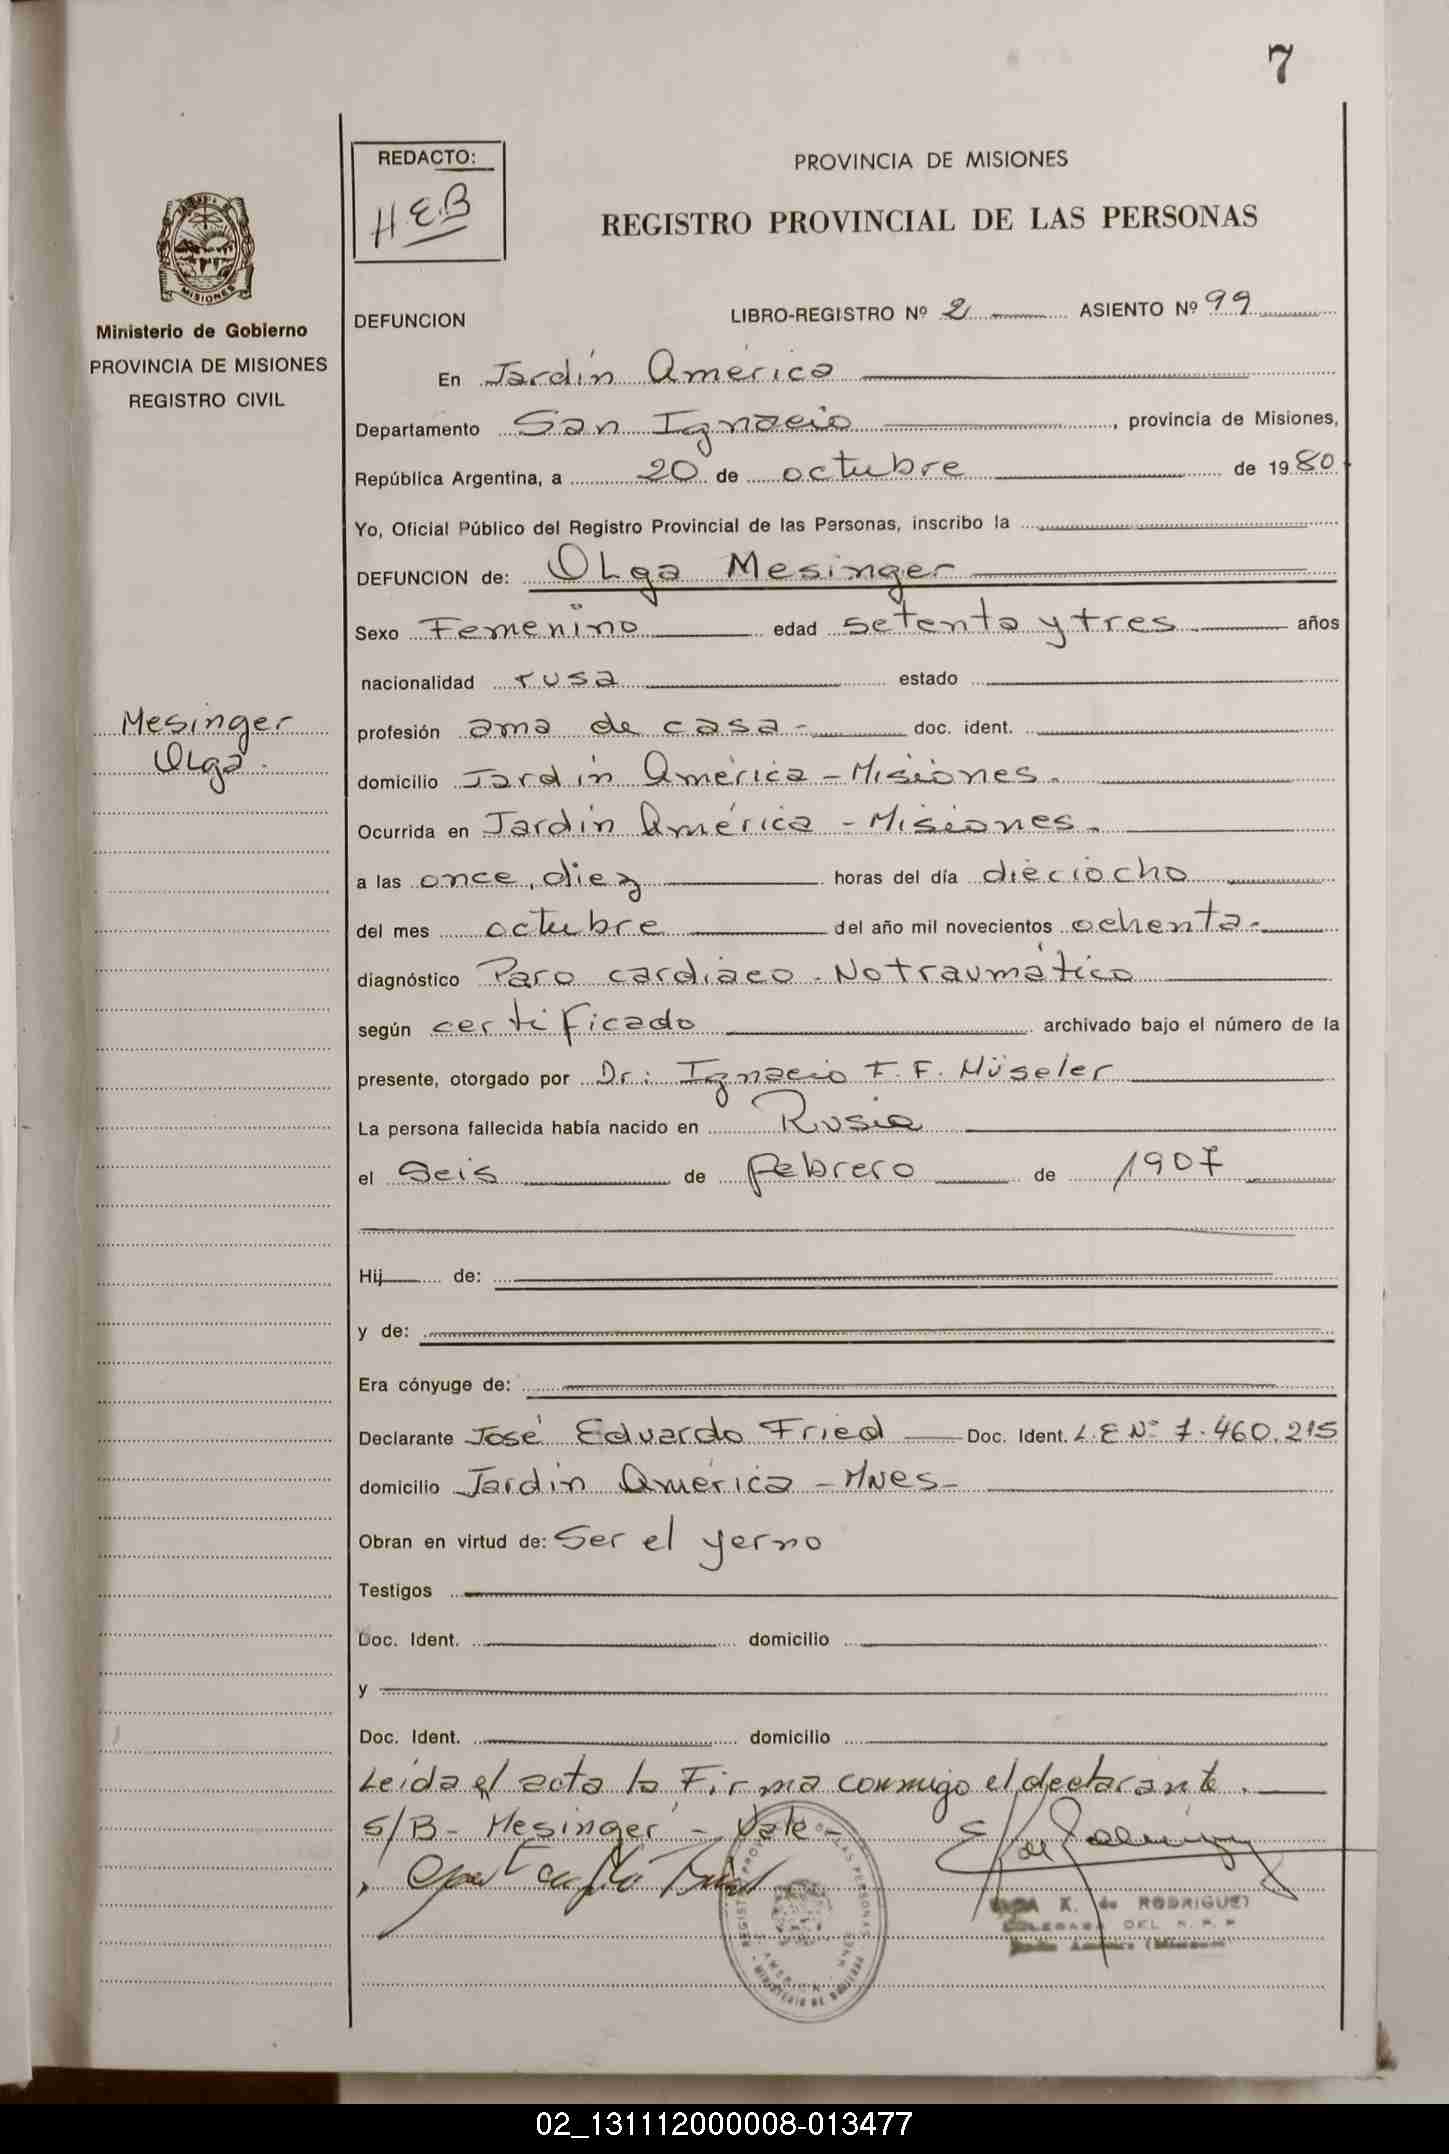 7
REDACTO:
HEB
PROVINCIA DE MISIONES
REGISTRO PROVINCIAL DE LAS PERSONAS
MISIONES
Ministerio de Gobierno
PROVINCIA DE MISIONES
REGISTRO CIVIL
DEFUNCION LIBRO-REGISTRO Nº 2 ASIENTO Nº 99
En Jardín América
Departamento San Ignacio, provincia de Misiones,
República Argentina, a 20 de octubre de 1980
Yo, Oficial Público del Registro Provincial de las Personas, inscribo la
DEFUNCION de: Olga Mesinger
Sexo Femenino edad setenta y tres años
nacionalidad rusa estado
Mesinger
Olga.
profesión ama de casa- doc. ident.
domicilio Jardín América - Misiones.
Ocurrida en Jardín América - Misiones.
a las once, diez horas del día dieciocho
del mes octubre del año mil novecientos ochenta-
diagnóstico Paro cardíaco - No traumático
según certificado archivado bajo el número de la
presente, otorgado por Dr: Ignacio F. F. Müseler
La persona fallecida había nacido en Rusia
el seis de febrero de 1907
Hij de:
y de:
Era cónyuge de:
Declarante José Eduardo Fried Doc. Ident. L.E Nº 7.460.215
domicilio Jardín América - Mnes-
Obran en virtud de: Ser el yerno
Testigos
Doc. Ident. domicilio
y
Doc. Ident. domicilio
Leída el acta la Firma conmigo el declarante.
S/B - Mesinger - Vale-
K. de RODRIGUEZ
DEL R. P. P
02_131112000008-013477